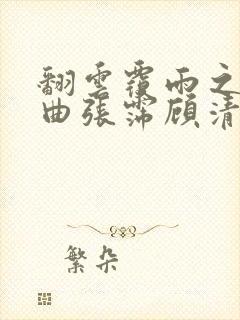 翻雲覆雨之
曲張霈顧清
繁朵